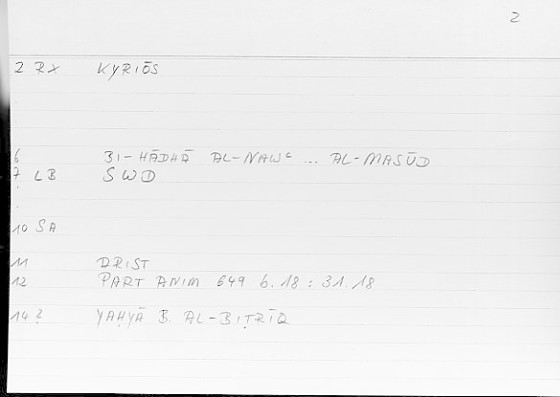 2
2 RX KYRIŌS
6 BI-HĀDHĀ AL-NAWᶜ ... AL-MASŪD
7 LB SWD
10 SA
11 ARIST
12 PART ANIM 649 b.18 : 31.18
14 2 YAḤYĀ B. AL-BIṬRĪQ